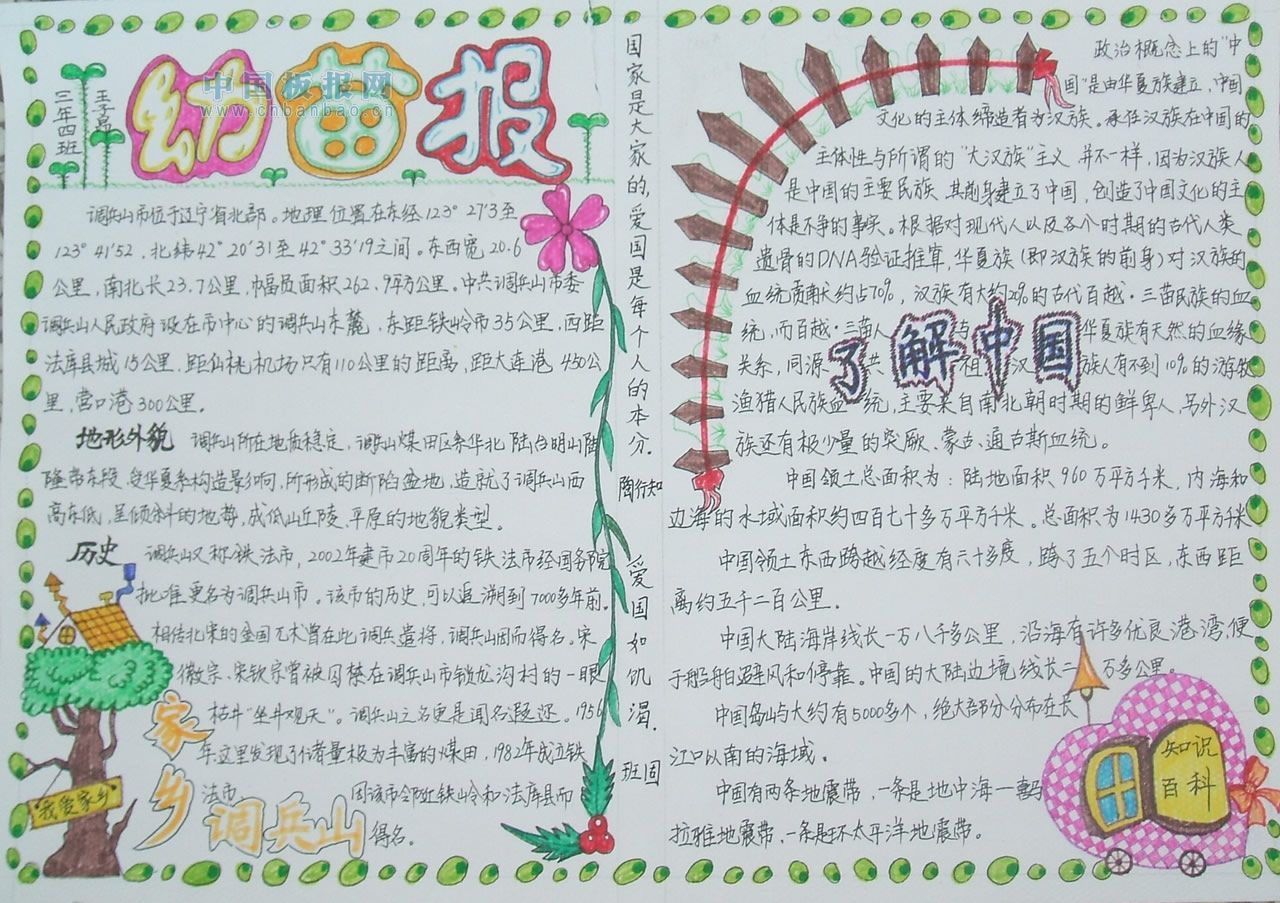 幼苗报
中国板报网
www.cnbanbao.cn
三年四班
王子昂
调兵山市位于辽宁省北部。地理位置在东经123°27'3至
123°41'52，北纬42°20'31至42°33'19之间。东西宽20.6
公里，南北长23.7公里，幅员面积262.9平方公里。中共调兵山市委
调兵山人民政府设在市中心的调兵山东麓，东距铁岭市35公里，西距
法库县城15公里，距仙桃机场只有110公里的距离，距大连港450公
里，营口港300公里。
地形外貌 调兵山所在地质稳定，调兵山煤田区系华北陆台明山陆
隆带东段，受华夏系构造影响，所形成的断陷盆地，造就了调兵山西
高东低，呈倾斜的地势，成低山丘陵、平原的地貌类型。
历史 调兵山又称铁法市，2002年建市20周年的铁法市经国务院
批准更名为调兵山市。该市的历史，可以追溯到7000多年前。
相传北宋的金国兀术曾在此调兵遣将，调兵山因而得名。宋
徽宗、宋钦宗曾被囚禁在调兵山市锁龙沟村的一眼
枯井"坐井观天"。调兵山之名更是闻名遐迩。1956
年这里发现了储量极为丰富的煤田，1982年成立铁
法市， 因该市邻近铁岭令和法库县而
得名。
家乡调兵山
我爱家乡
国家是大家的，爱国是每个人的本分。
陶行知
爱国如饥渴。
班固
政治概念上的"中
国"是由华夏族建立，中国
文化的主体缔造者为汉族。承任汉族在中国的
主体性与所谓的"大汉族"主义并不一样，因为汉族人
是中国的主要民族，其前身建立了中国，创造了中国文化的主
体是不争的事实。根据对现代人以及各个时期的古代人类
遗骨的DNA验证推算，华夏族（即汉族的前身）对汉族的
血统贡献大约占70%，汉族有大约20%的古代百越·三苗民族的血
统，而百越·三苗人与华夏族有天然的血缘
关系，同源共祖，汉族人有不到10%的游牧
渔猎人民族血统，主要来自南北朝时期的鲜卑人，另外汉
族还有极少量的突厥、蒙古、通古斯血统。
了解中国
中国领土总面积为：陆地面积960万平方千米，内海和
边海的水域面积约四百七十多万平方千米。总面积为1430多万平方千米
中国领土东西跨越经度有六十多度，跨了五个时区，东西距
离约五千二百公里。
中国大陆海岸线长一万八千多公里，沿海有许多优良港湾，便
于船舶避风和停靠。中国的大陆边境线长二万多公里。
中国岛屿大约有5000多个，绝大部分分布在长
江口以南的海域。
中国有两条地震带，一条是地中海一喜马
拉雅地震带，一条是环太平洋地震带。
知识
百科